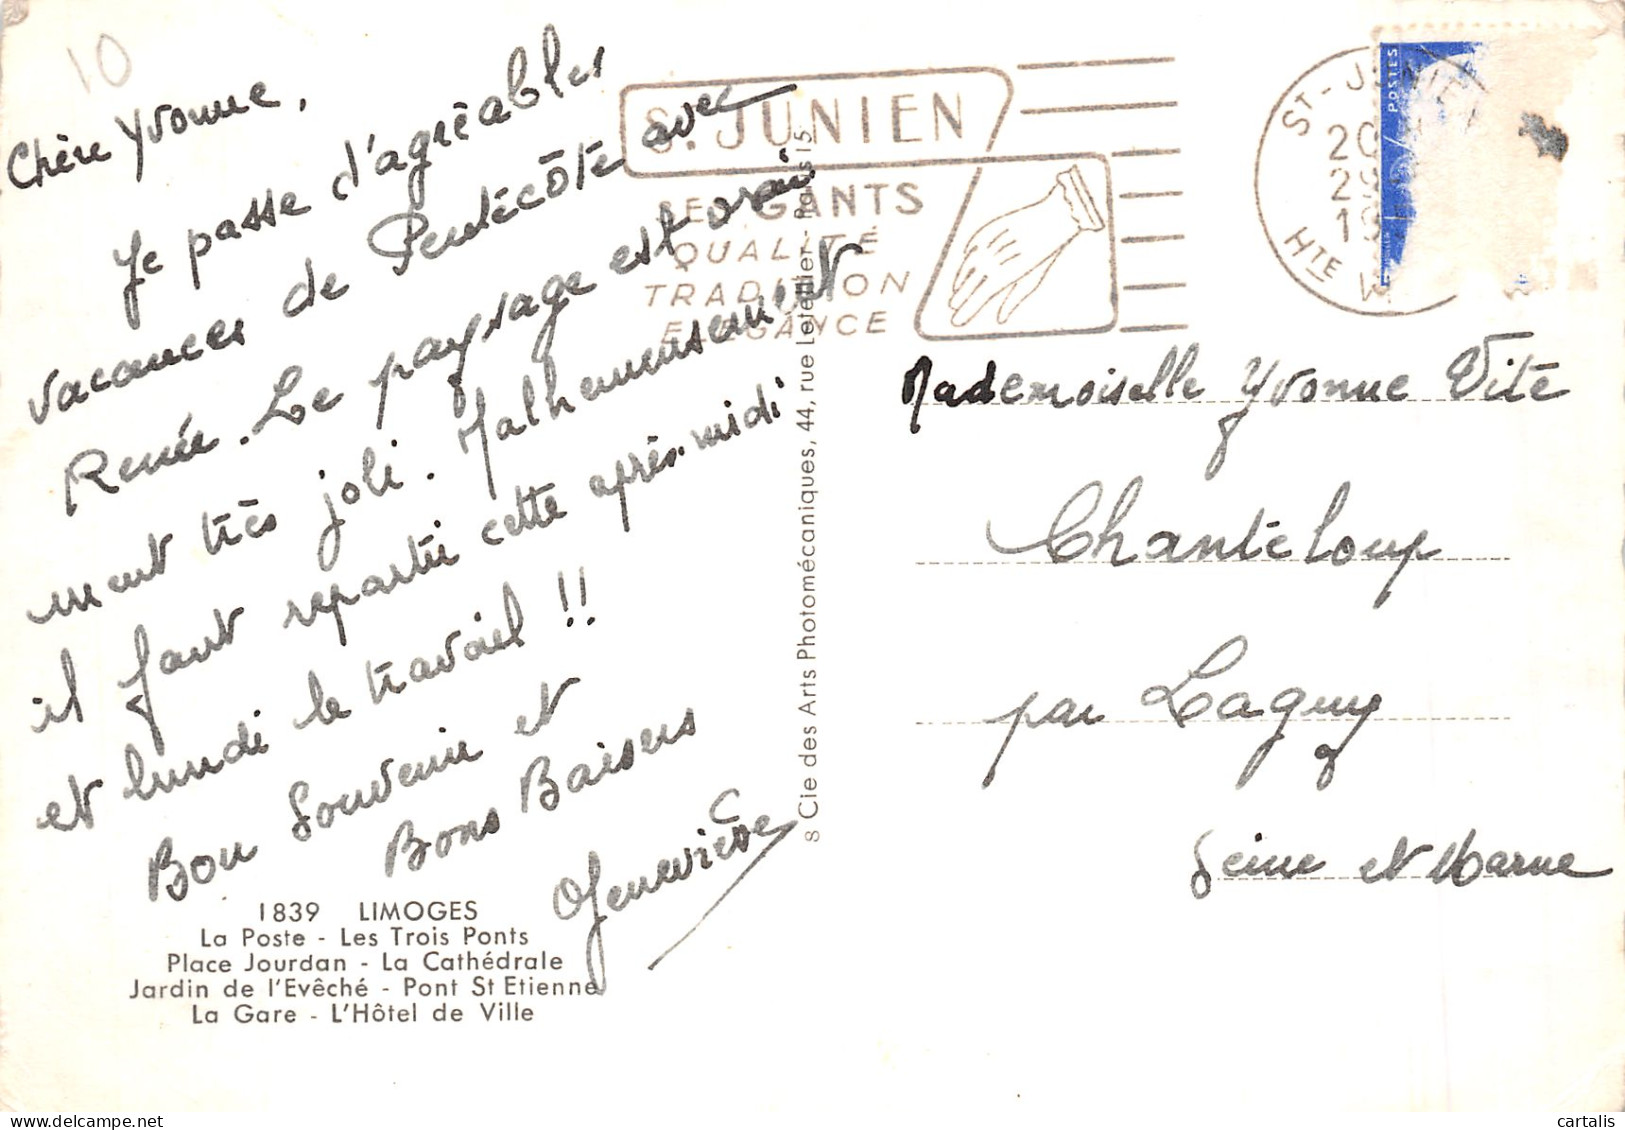 10
Chère Yvonne,
Je passe d'agréables
vacances de Pentecôte avec
Renée. Le paysage est vrai
ment très joli. Malheureusement
il faut repartir cette après-midi
et lundi le travail !!
Bon Souvenir et
Bons Baisers
Geneviève
1839 LIMOGES
La Poste - Les Trois Ponts
Place Jourdan - La Cathédrale
Jardin de l'Evêché - Pont St Etienne
La Gare - L'Hôtel de Ville
8 Cie des Arts Photomécaniques, 44, rue Letellier - Paris 15
S. JUNIEN
SES GANTS
QUALITÉ
TRADITION
ELEGANCE
ST-JUNIEN
20
19
HTE V
POSTES
Mademoiselle Yvonne Vité
Chanteloup
par Lagny
Seine et Marne
cartalis